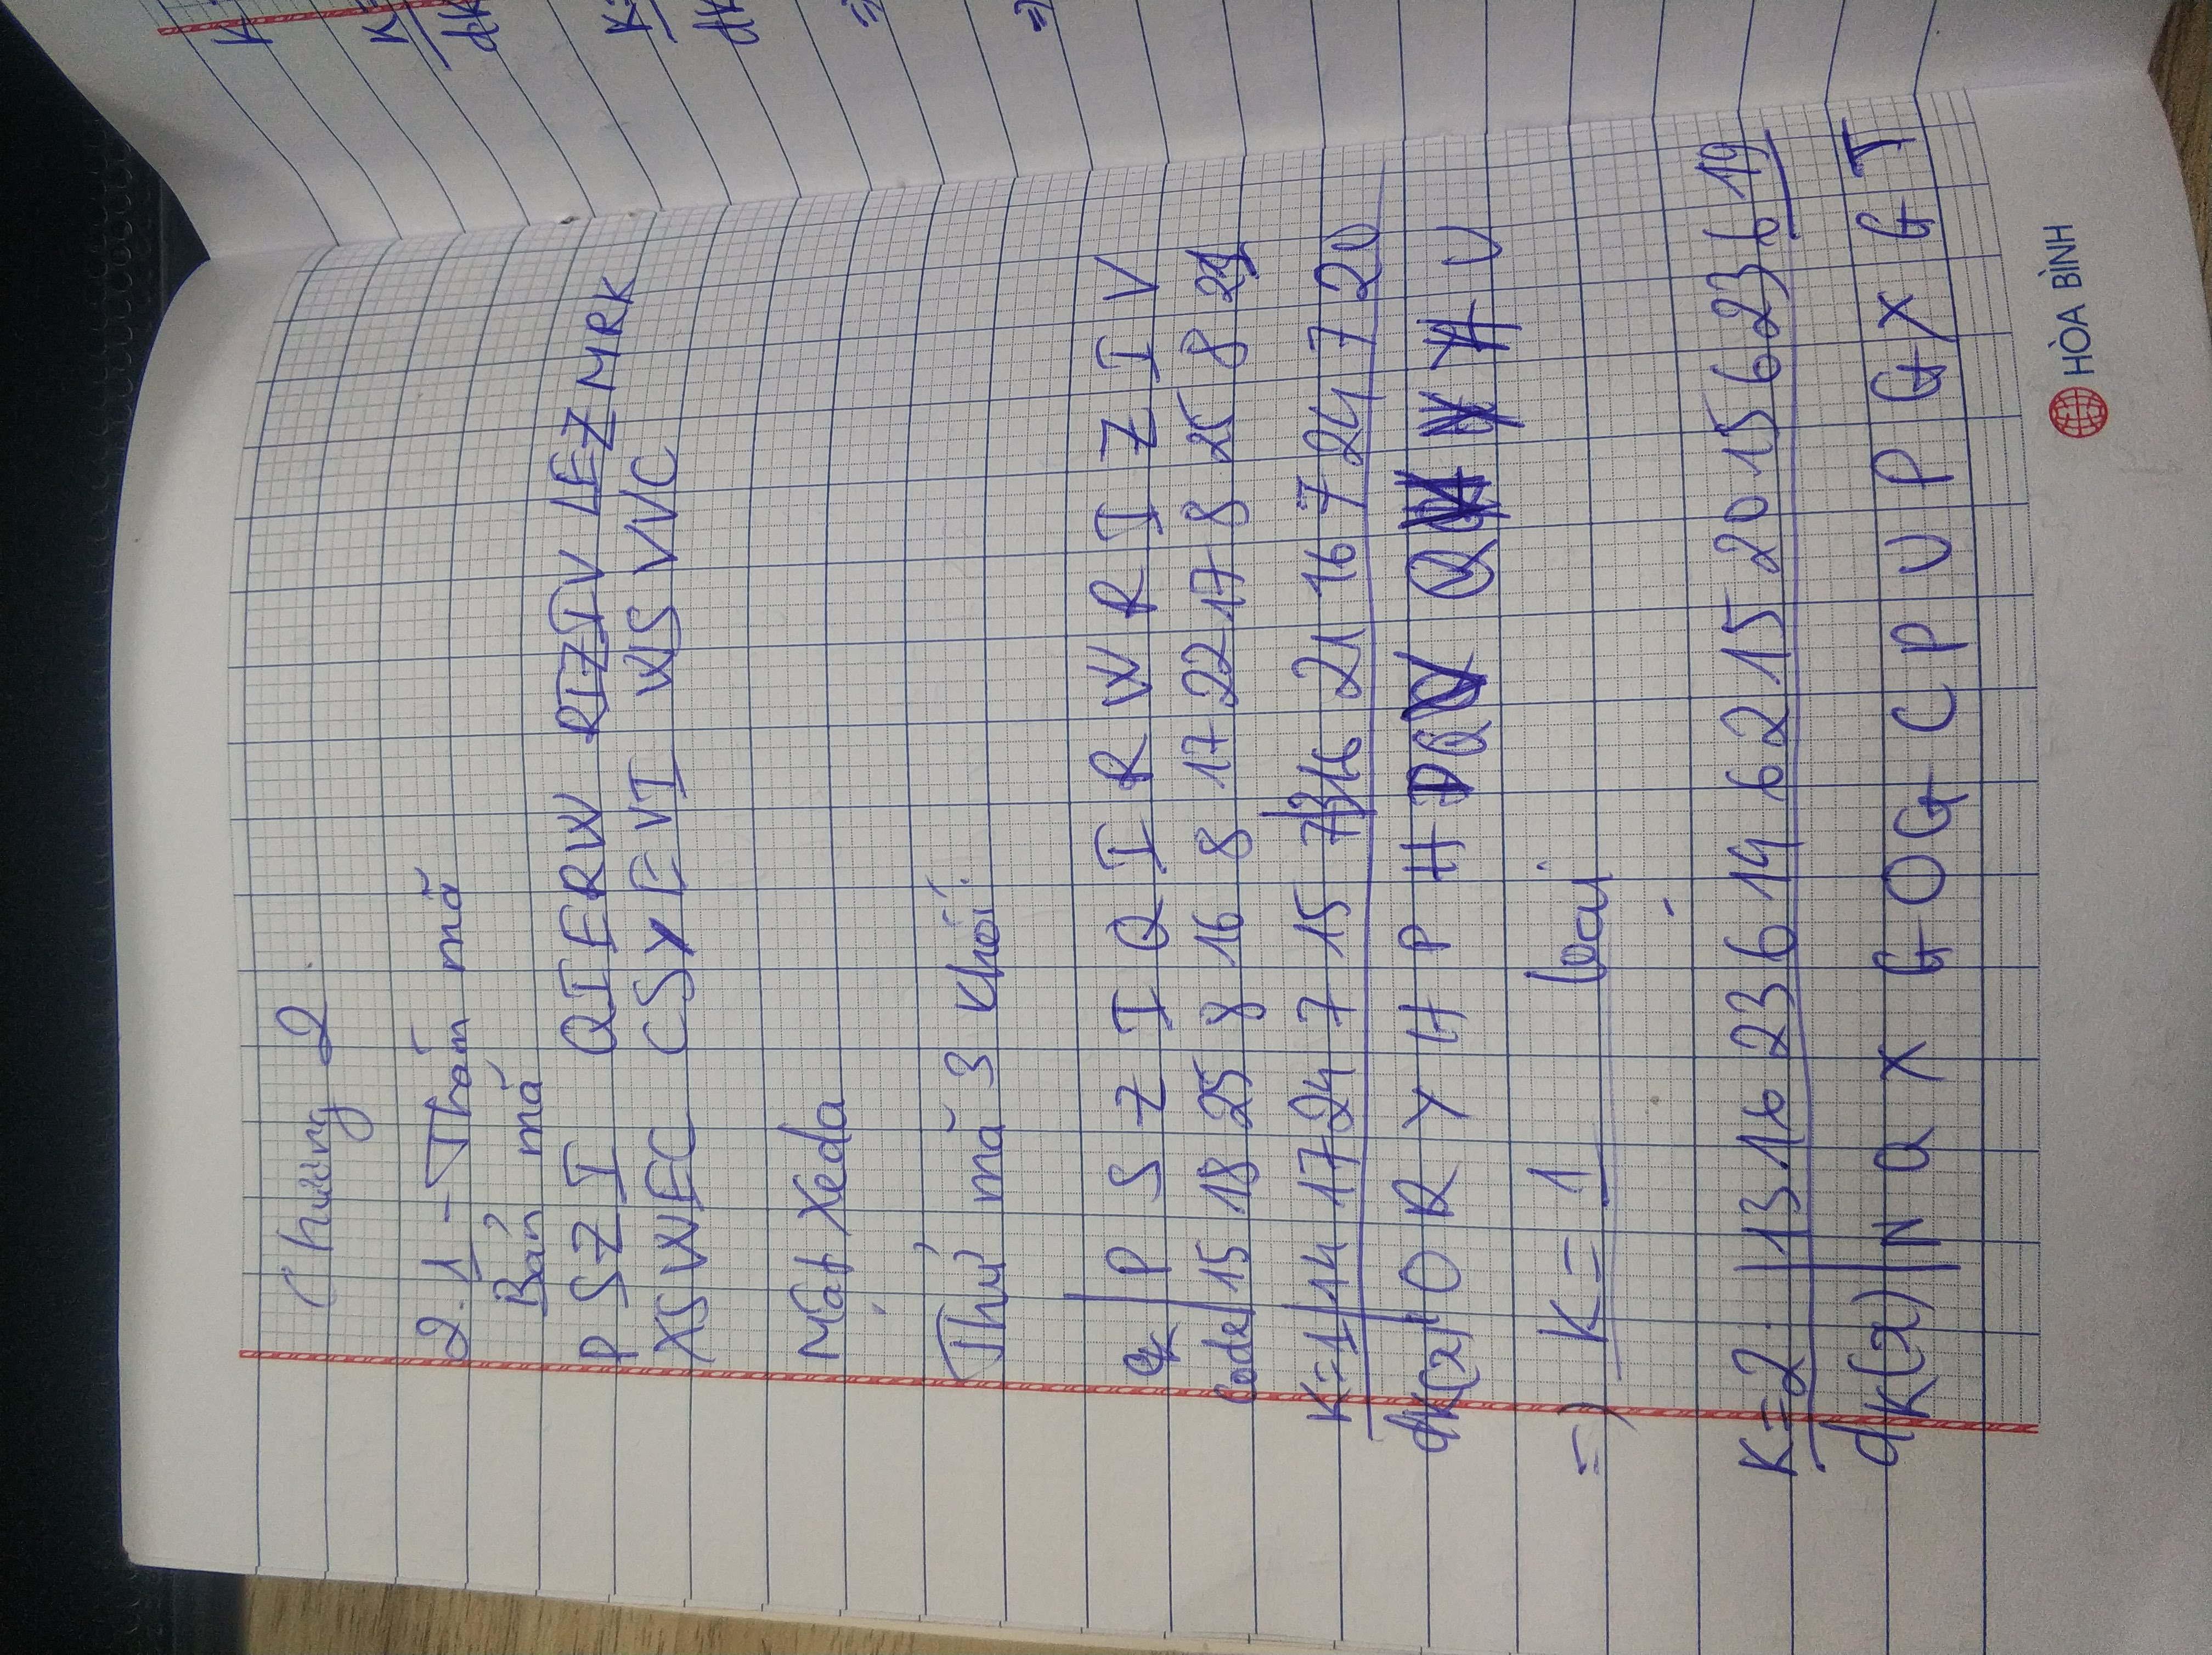 Chương 2.
2.1 - Thám mã
Bản mã
PSZI QIERW RIZIV LEZMRK
XSWEC CSYEVI WSVVC
Mật Xeda
Thử mã 3 khối:
P S Z I Q I R W R I Z I V
code 15 18 25 8 16 8 17 22 17 8 25 8 21
K=1 14 17 24 7 15 7 16 21 16 7 24 7 20
dK(x) O R Y H P H Q V Q H Y H U
=> K = 1 loại
K=2 13 16 23 6 14 6 2 15 20 15 6 23 6 19
dK(x) N Q X G O G C P U P G X G T
HÒA BÌNH
K
K=
dK
K=
dK
=>
=>